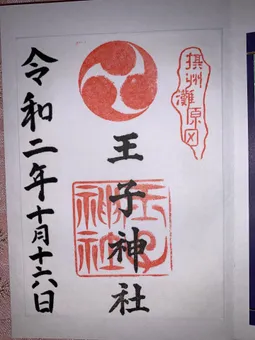 摂州
灘原田
王子神社
王子
神社
令和二年十月十六日